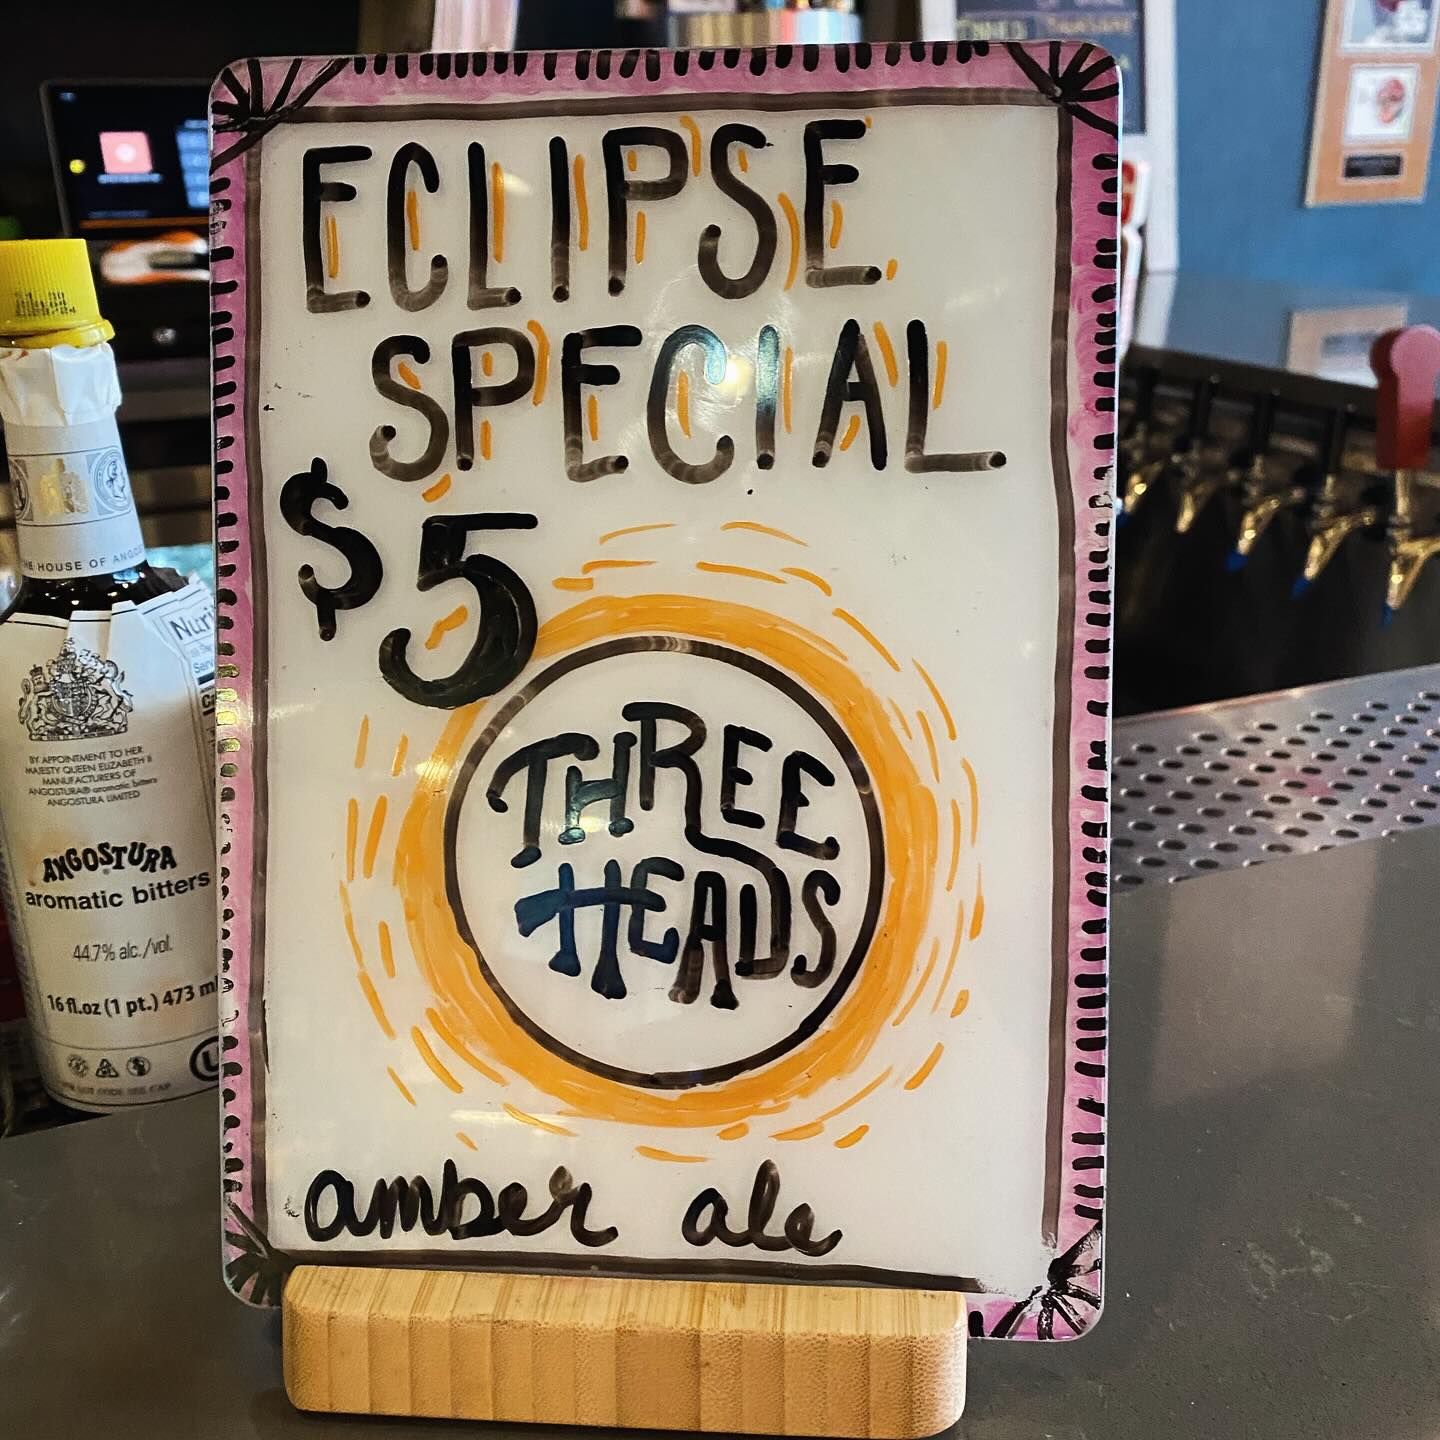 ECLIPSE
SPECIAL
$5
THREE
HEADS
amber ale
THE HOUSE OF ANGO
BY APPOINTMENT TO HER
MAJESTY QUEEN ELIZABETH II
MANUFACTURERS OF
ANGOSTURA® aromatic bitters
ANGOSTURA LIMITED
ANGOSTURA
aromatic bitters
44.7% alc./vol.
16 fl.oz (1 pt.) 473 ml